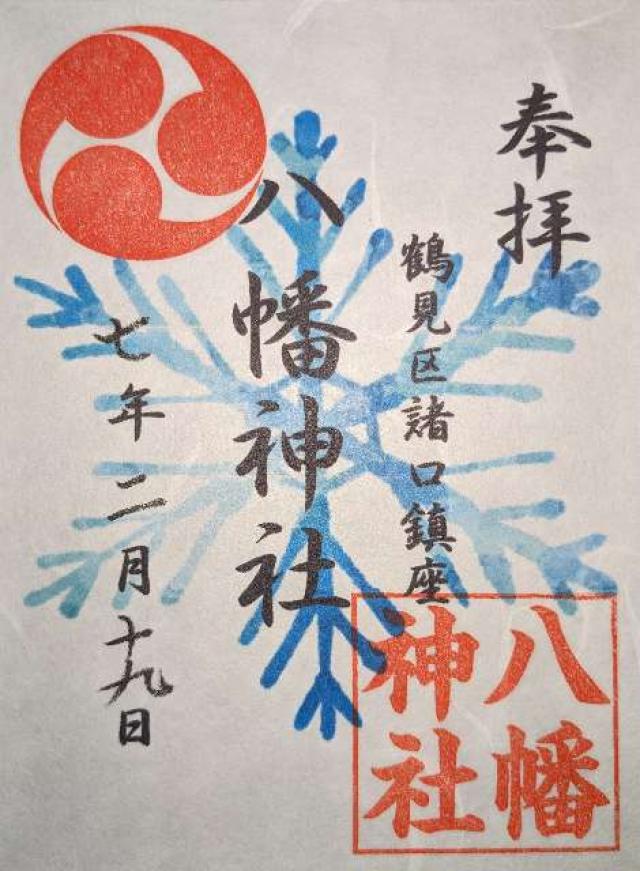 奉拝
鶴見区諸口鎮座
八幡神社
七年二月十九日
八幡
神社